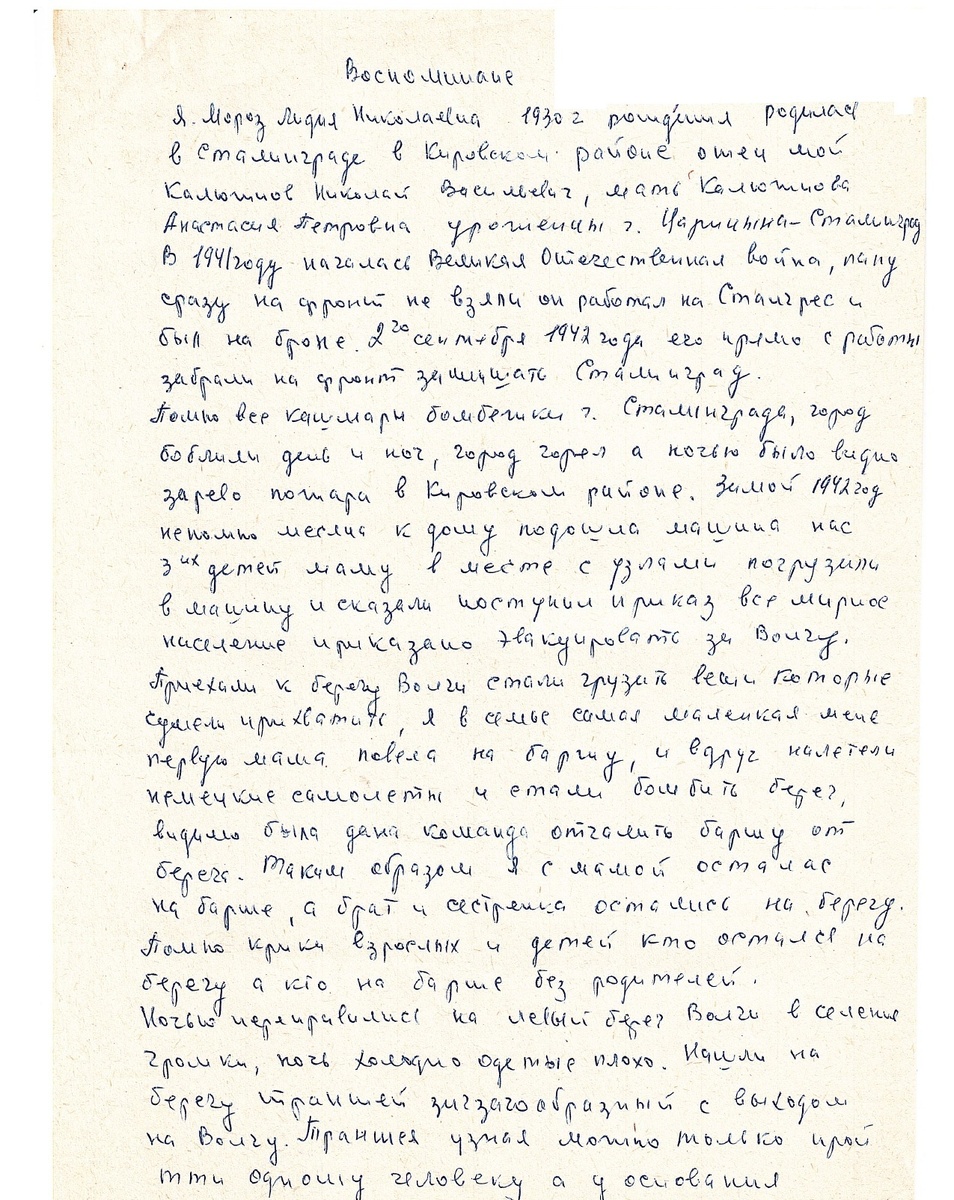 Воспоминание
Я. Мороз Лидия Николаевна 1930 г рождения родилась
в Сталинграде в Кировском районе отец мой
Калюжнов Николай Васильевич, мать Калюжнова
Анастасия Петровна уроженцы г. Царицына-Сталинград
В 1941 году началась Великая Отечественная война, папу
сразу на фронт не взяли он работал на Сталгрес и
был на броне. 2го сентября 1942 года его прямо с работы
забрали на фронт защищать Сталинград.
Помню все кашмары бомбёшки г. Сталинграда, город
боблили день и ноч, город горел а ночью было видно
зарево пожара в Кировском районе. Зимой 1942 год
непомню месяца к дому подошла машина нас
3их детей маму в месте с узлами погрузили
в машину и сказали поступил приказ все мирное
население приказано эвакуировать за Волгу.
Приехали к берегу Волги стали грузить вещи которые
сумели прихватить, я в семье самая маленкая меня
первую мама повела на баржу, и вдруг налетели
немецкие самолеты и стали бомбить берег,
видимо была дана команда отчалить баржу от
берега. Таким образом я с мамой осталас
на барже, а брат и сестренка остались на берегу.
Помню крики взрослых и детей кто остался на
берегу а кто на барже без родителей.
Ночью перправились на левый берег Волги в селение
Громки, ночь холодно одетые плохо. Нашли на
берегу траншей зигзагообразный с выходом
на Волгу. Траншея узкая можно только прой
тти одному человеку а у основания